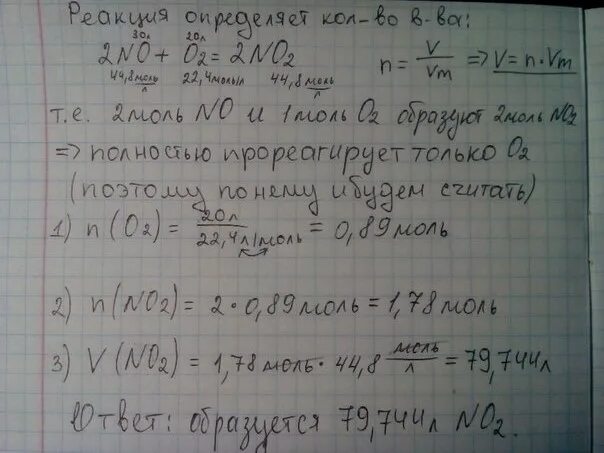 Реакция определяет кол-во в-ва:
30л 20л
2NO + O₂ = 2NO₂ n = V/Vm => V = n·Vm
44,8 моль/л 22,4 моль/л 44,8 моль/л
т.е. 2моль NO и 1моль O₂ образуют 2моль NO₂
=> полностью прореагирует только O₂
(поэтому по нему и будем считать)
1) n(O₂) = 20л/22,4л/моль = 0,89моль
2) n(NO₂) = 2·0,89моль = 1,78моль
3) V(NO₂) = 1,78моль·44,8 моль/л = 79,744л
Ответ: образуется 79,744л NO₂.